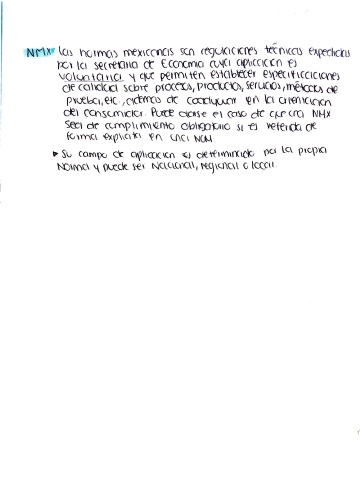 NMX: Las normas mexicanas son regulaciones técnicas expedidas
por la secretaría de Economía cuya aplicación es
voluntaria y que permiten establecer especificaciones
de calidad sobre procesos, productos, servicios, métodos de
prueba, etc.,
en la orientación
del consumidor. Puede darse el caso de que una NMX
sea de cumplimiento obligatorio si es referida de
forma explicita en una NOM
▸ Su campo de aplicación es determinado por la propia
Norma y puede ser Nacional, regional o local.